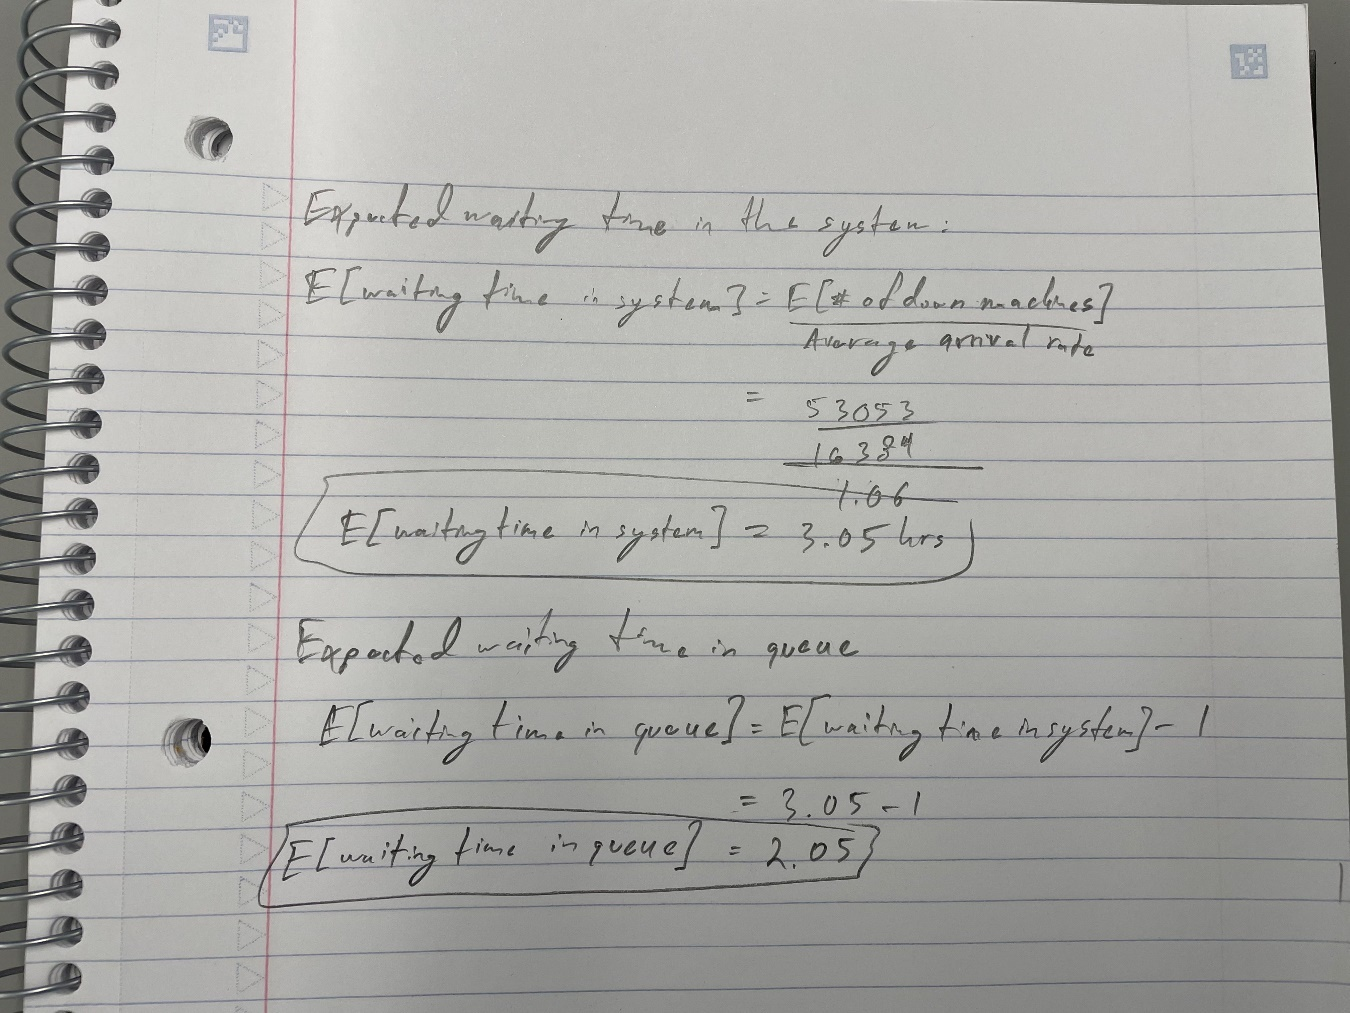 Expected waiting time in the system:
E[waiting time in system] = E[# of down machines]
Average arrival rate
= 53053
16384
1.06
E[waiting time in system] = 3.05 hrs
Expected waiting time in queue
E[waiting time in queue] = E[waiting time in system] - 1
= 3.05 - 1
E[waiting time in queue] = 2.05